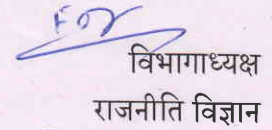 For
विभागाध्यक्ष
राजनीति विज्ञान